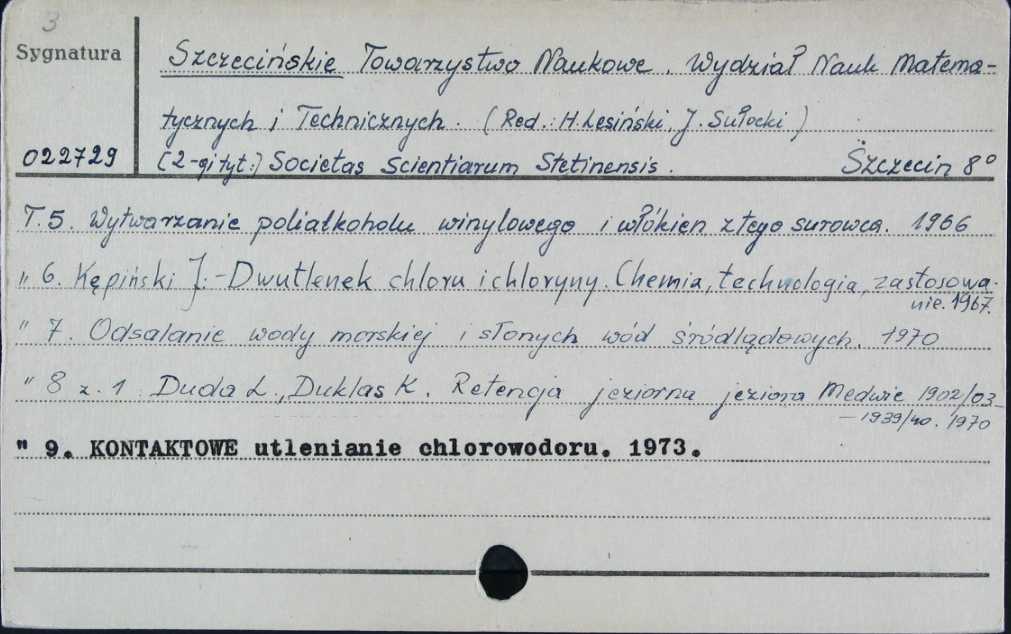 3
Sygnatura
Szczecińskie Towarzystwo Naukowe. Wydział Nauk Matema-
tycznych i Technicznych. (Red.: H. Lesiński, J. Sułocki)
022729 (2-gi tyt:) Societas Scientiarum Stetinensis. Szczecin 8°
T.5. Wytwarzanie polialkoholu winylowego i włókien z tego surowca. 1966
" 6. Kępiński J.- Dwutlenek chloru i chloryny. Chemia, technologia, zastosowa-
nie. 1967.
" 7. Odsalanie wody morskiej i słonych wód śródlądowych. 1970
" 8 z. 1. Duda L., Duklas K. Retencja jeziorna jeziora Medwie 1902/03-
- 1939/40. 1970
" 9. KONTAKTOWE utlenianie chlorowodoru. 1973.